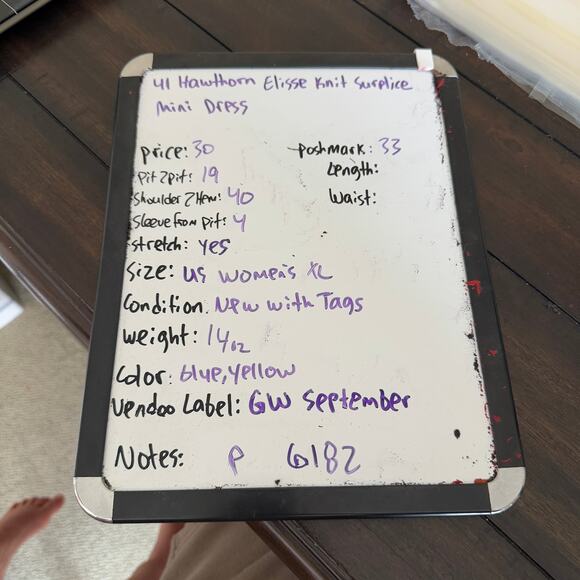 41 Hawthorn Elisse Knit Surplice
Mini Dress
price: 30
poshmark: 33
Pit 2 pit: 19
Length:
Shoulder 2 Hem: 40
Waist:
Sleeve from pit: 4
stretch: yes
Size: US Women's XL
Condition: New with Tags
Weight: 14oz
Color: blue, yellow
Vendoo Label: GW September
Notes: P 6182